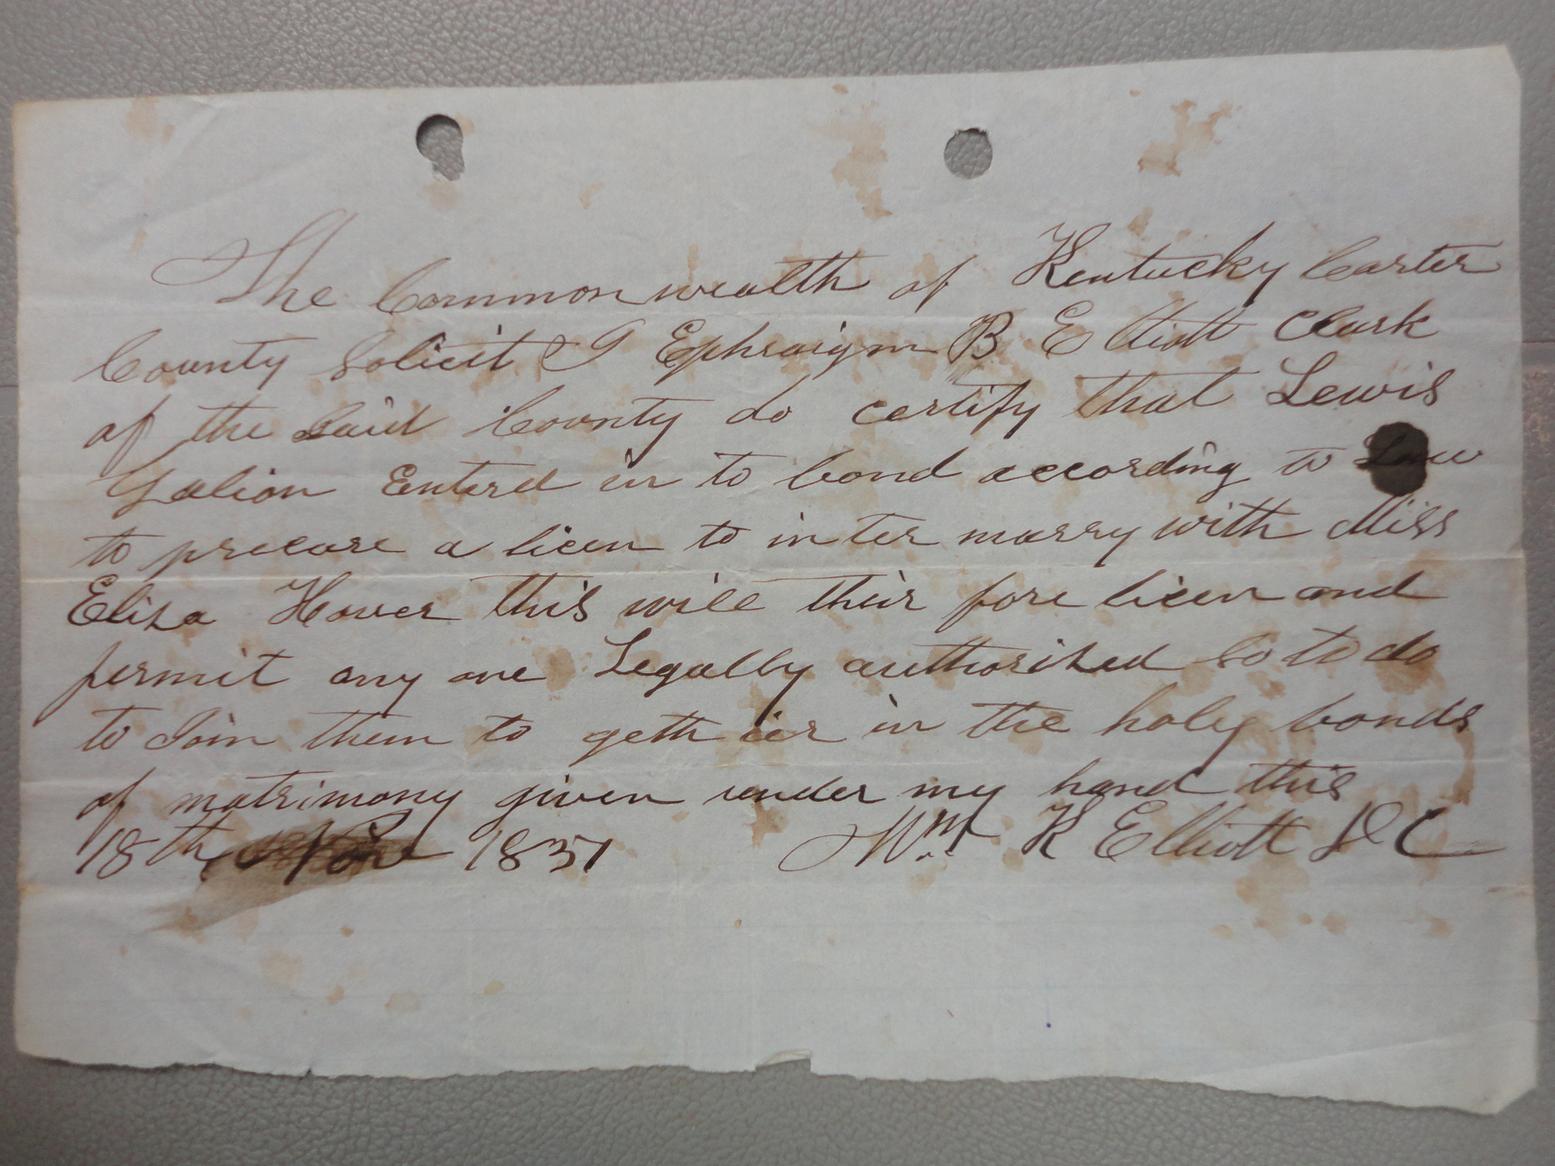 The Common wealth of Kentucky Carter
County Solicit & I Ephraigm B Elliott Clark
of the said County do certify that Lewis
Galion Enterd in to bond according to Law
to precure a licen to inter marry with Miss
Eliza Hover this will their fore licen and
permit any one Legally authorised so to do
to Join them to geth ier in the holy bonds
of matrimony given under my hand this
18th 1851
Wm K Elliott D C